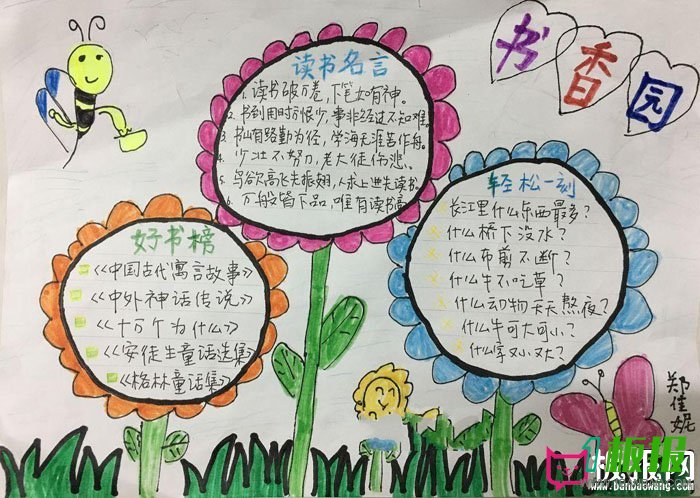 书香园
读书名言
1. 读书破万卷,下笔如有神。
2. 书到用时方恨少,事非经过不知难。
3. 书山有路勤为径,学海无涯苦作舟。
4. 少壮不努力,老大徒伤悲。
5. 鸟欲高飞先振翅,人求上进先读书。
6. 万般皆下品,唯有读书高
好书榜
《中国古代寓言故事》
《中外神话传说》
《十万个为什么》
《安徒生童话选集》
《格林童话集》
轻松一刻
长江里什么东西最多?
什么桥下没水?
什么布剪不断?
什么牛不吃草?
什么动物天天熬夜?
什么牛可大可小?
什么字又小又大?
郑佳妮
板报
www.banbaowang.com